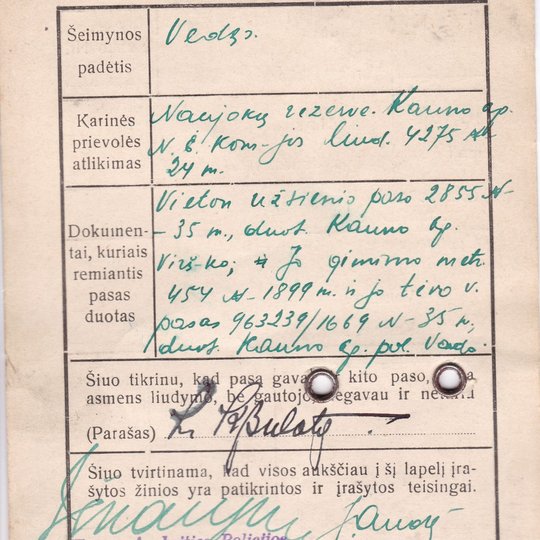 Šeimynos
padėtis
Vedęs.
Karinės
prievolės
atlikimas
Naujokų rezerve. Kauno ap.
N. Ė. Kom-jos liud. 4275 N-
24 m.
Dokumen-
tai, kuriais
remiantis
pasas
duotas
Vieton užsienio paso 2855 N-
- 35 m., duot. Kauno ap.
Virš-ko; Jo gimimo metr.
454 N-1899 m. ir jo tėvo v.
pasas 963239/1669 N-35 m.,
duot. Kauno ap. pol. Vado.
Šiuo tikrinu, kad pasą gavau kito paso,
asmens liudymo, be gautojo, negavau ir neturiu
(Parašas)
Šiuo tvirtinama, kad visos aukščiau į šį lapelį įra-
šytos žinios yra patikrintos ir įrašytos teisingai.
Policijos